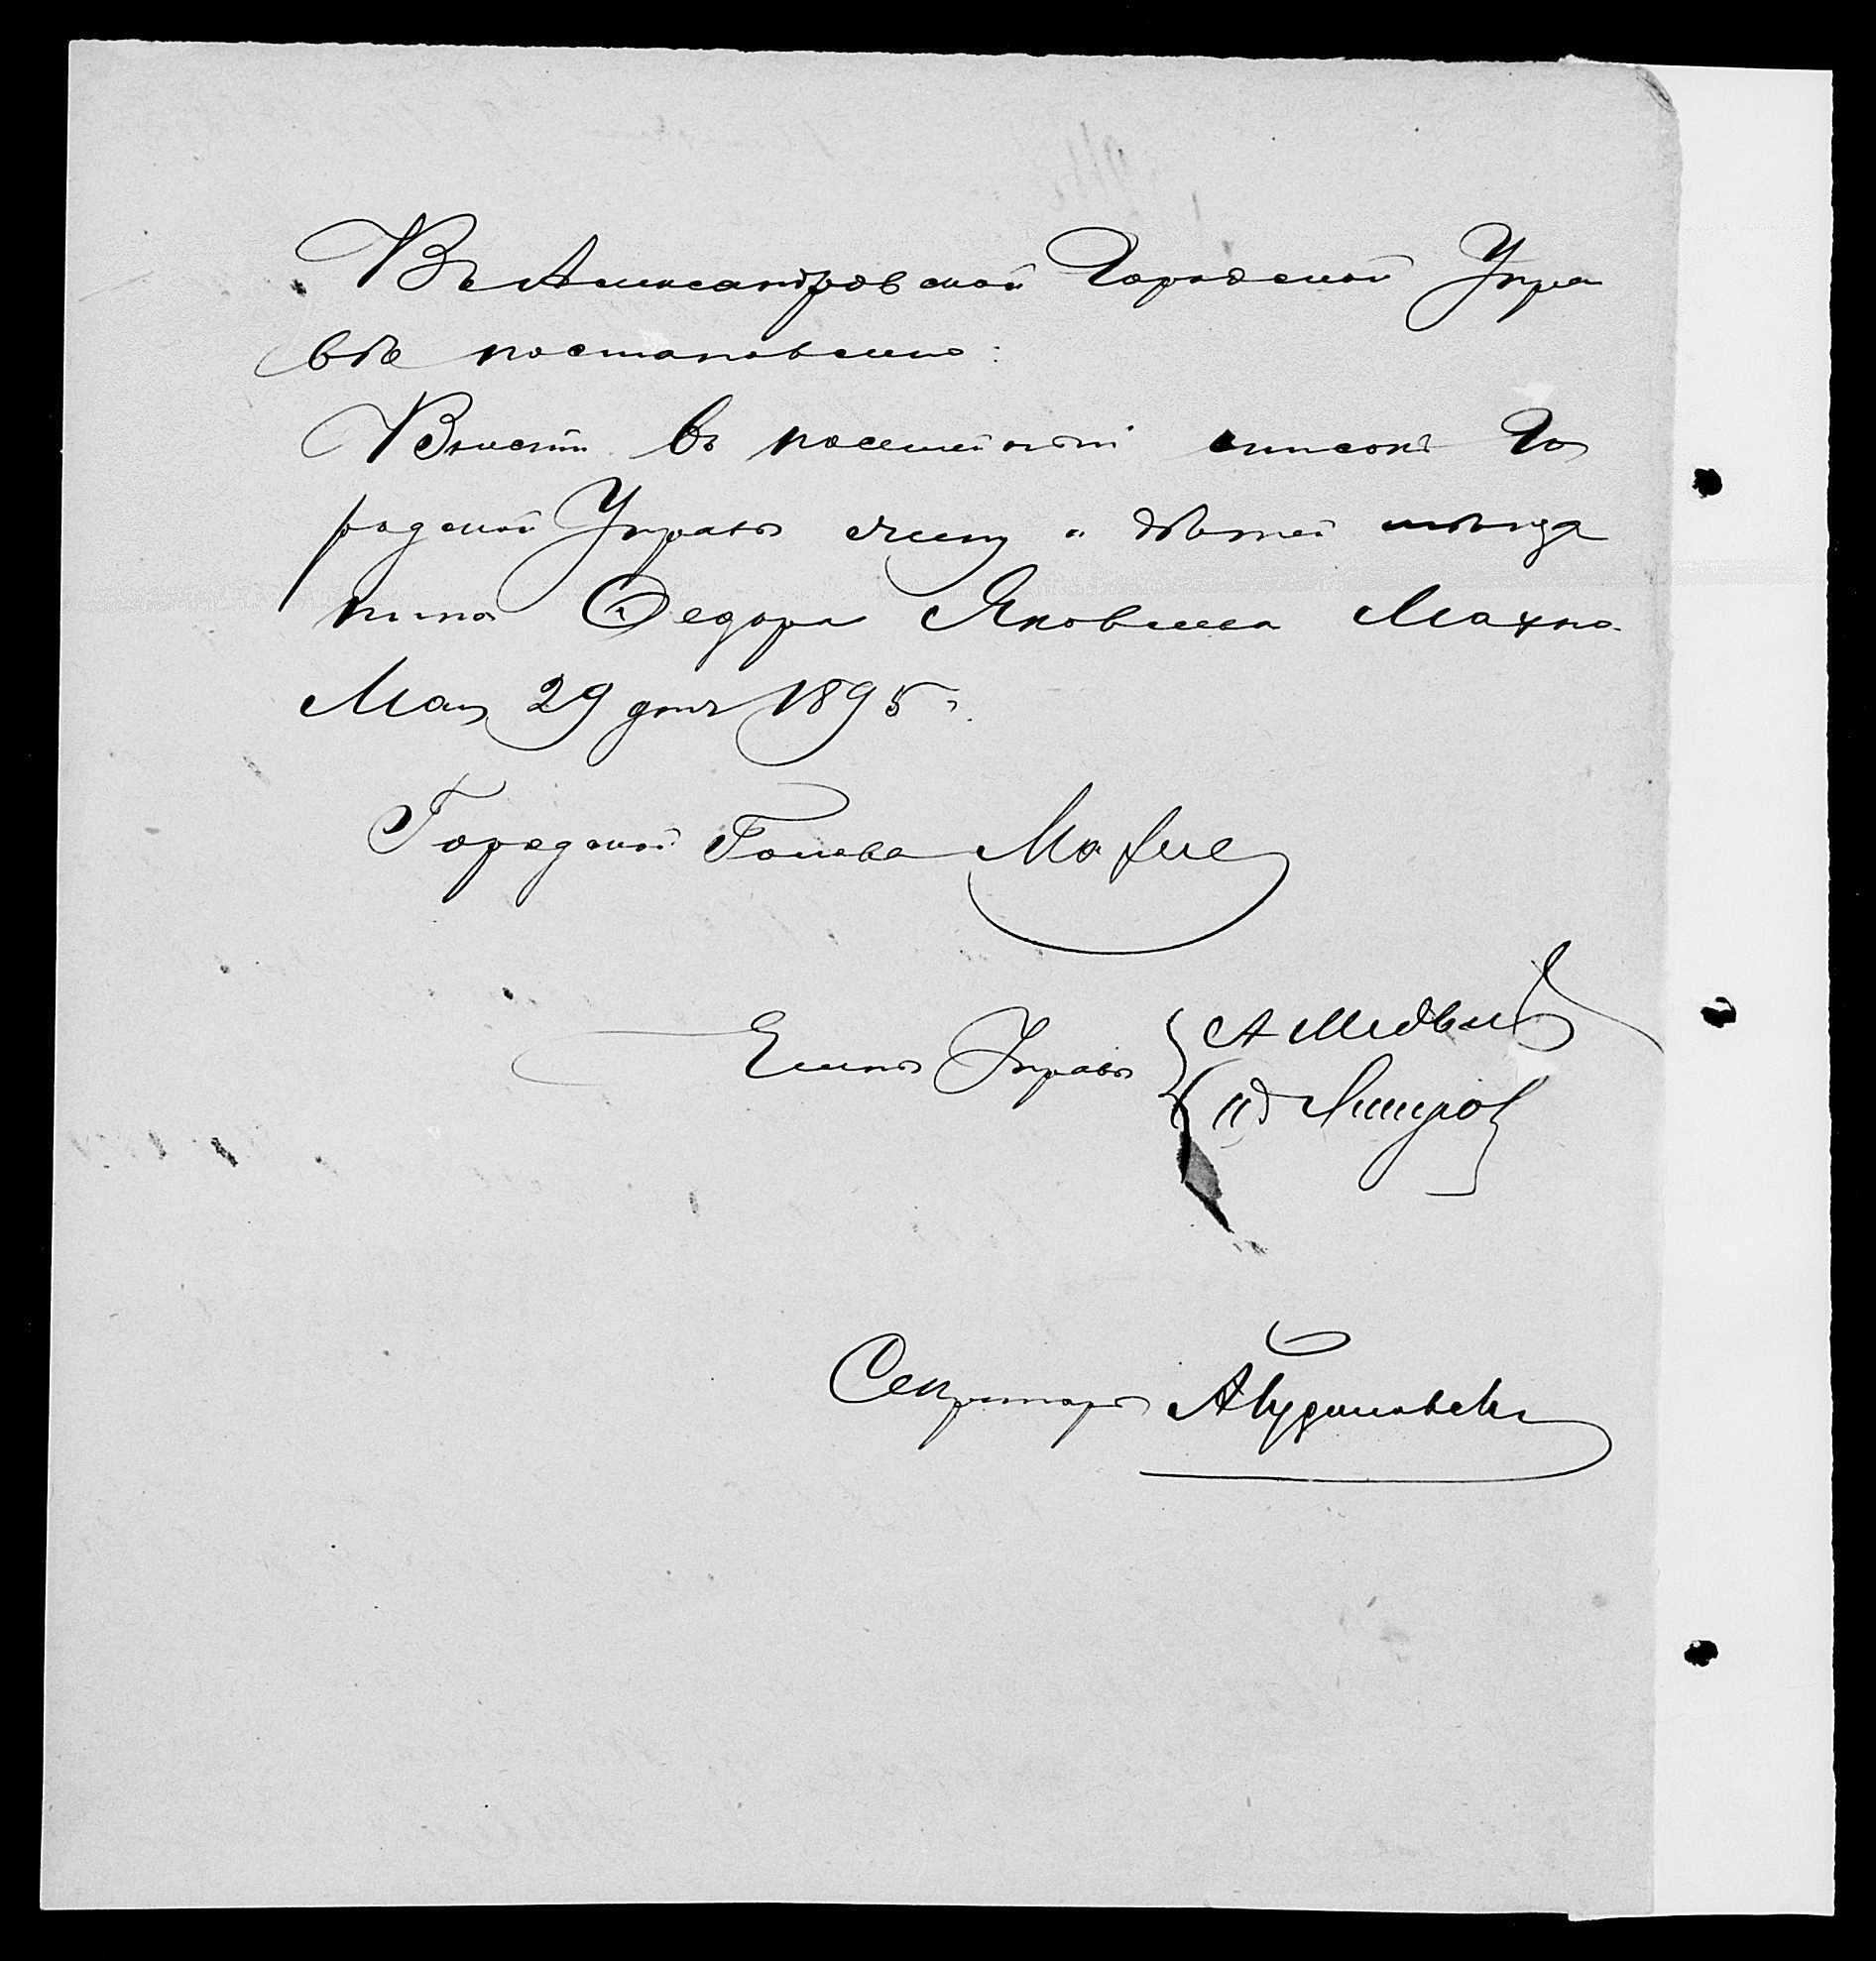 Въ Александровской Городской Упра
вѣ постановлено:
Внести въ посемейный списокъ Го
родской Управы жену и дѣтей мѣща
нина Федора Яковлева Махно
Мая 29 дня 1895 г.
Городской Голова Махно
Члены Управы { А Медвѣд
Секретарь